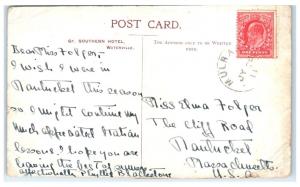 POST CARD.
GT. SOUTHERN HOTEL,
WATERVILLE.
THE ADDRESS ONLY TO BE WRITTEN
HERE.
Dear Miss Folger,-
I wish I were in
Nantucket this season
so I might continue my
much appreciated
lessons. I hope you are
having the best of summers
affectionately Phyllis Blackstone
Miss Anna Folger
The Cliff Road
Nantucket
Massachusetts
U.S.A.